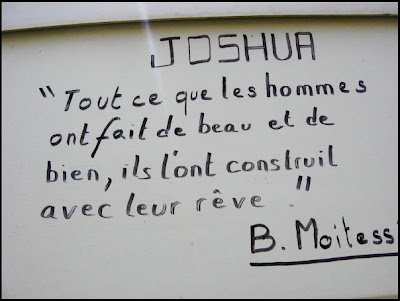 JOSHUA
"Tout ce que les hommes
ont fait de beau et de
bien, ils l'ont construit
avec leur rêve."
B. Moitess